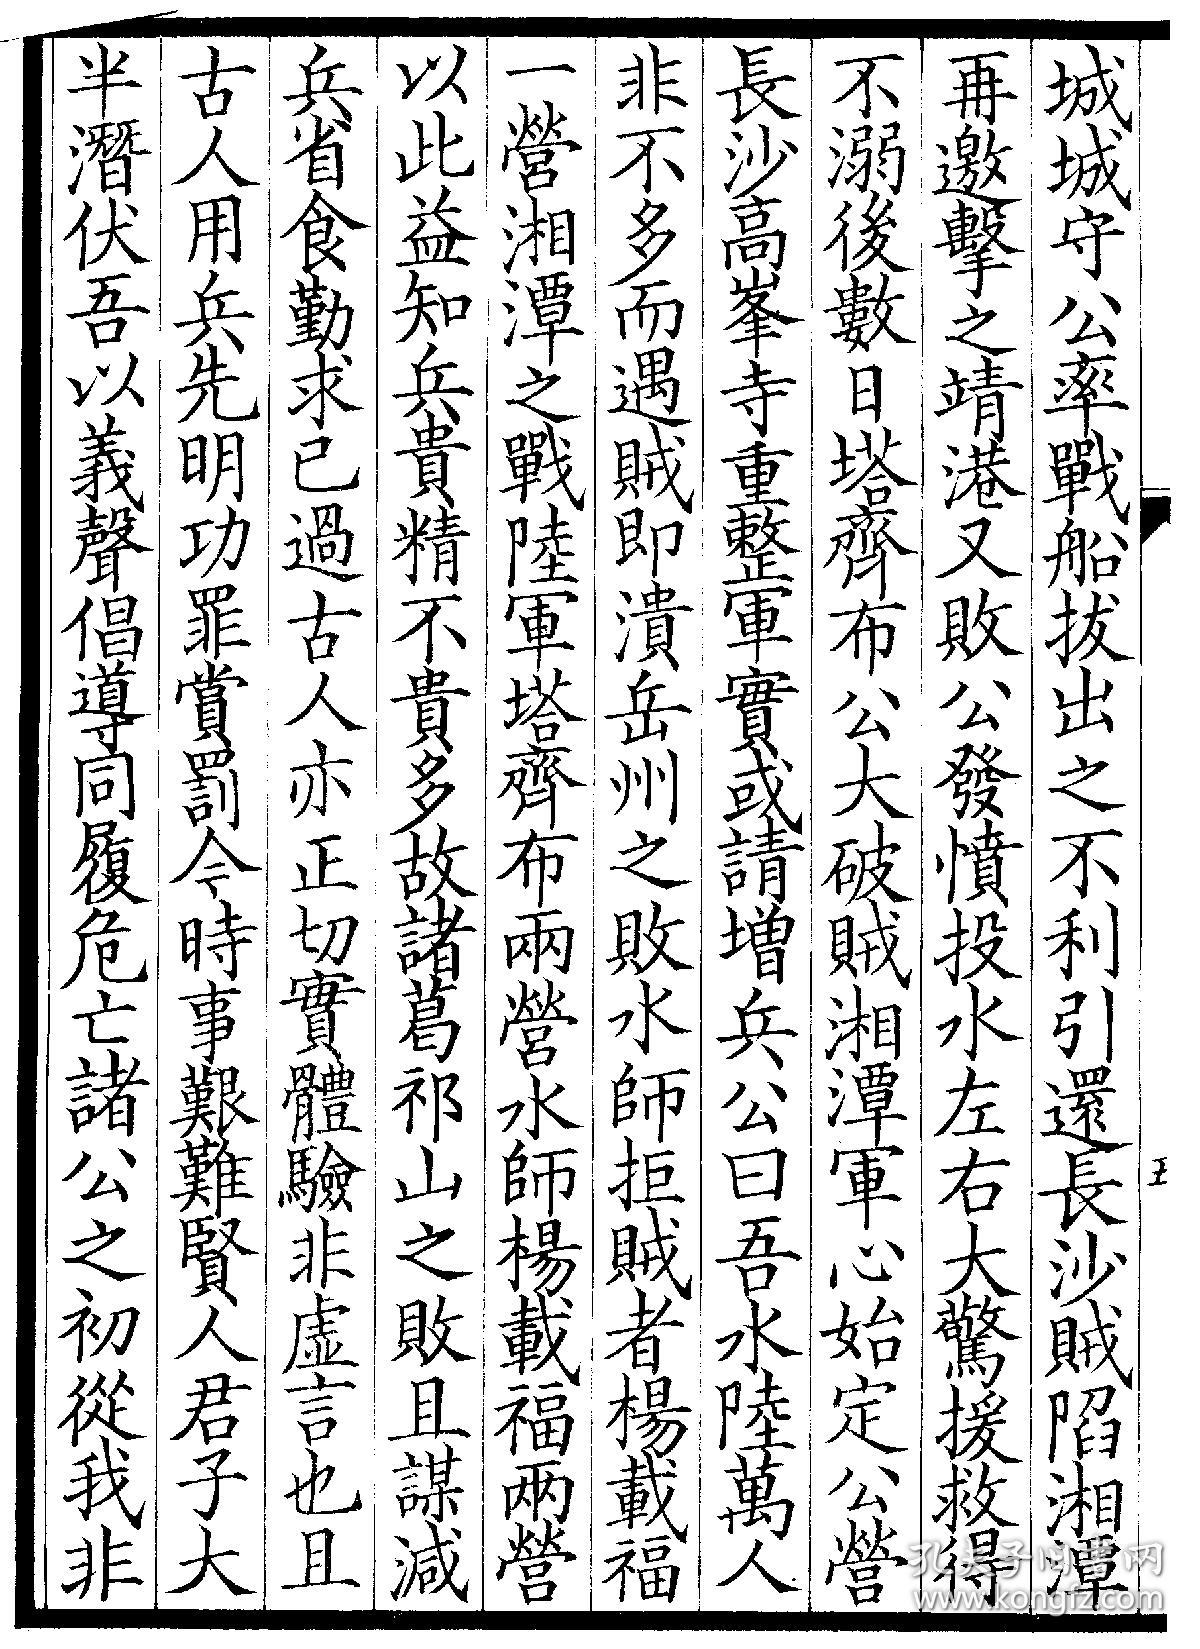 城城守公率戰船拔出之不利引還長沙賊陷湘潭
再邀擊之靖港又敗公發憤投水左右大驚援救得
不溺後數日塔齊布公大破賊湘潭軍心始定公營
長沙高峯寺重整軍實或請增兵公曰吾水陸萬人
非不多而遇賊即潰岳州之敗水師拒賊者楊載福
一營湘潭之戰陸軍塔齊布兩營水師楊載福兩營
以此益知兵貴精不貴多故諸葛祁山之敗且謀減
兵省食勤求已過古人亦正切實體驗非虛言也且
古人用兵先明功罪賞罰今時事艱難賢人君子大
半潛伏吾以義聲倡導同履危亡諸公之初從我非
五
孔夫子旧书网
www.kongfz.com